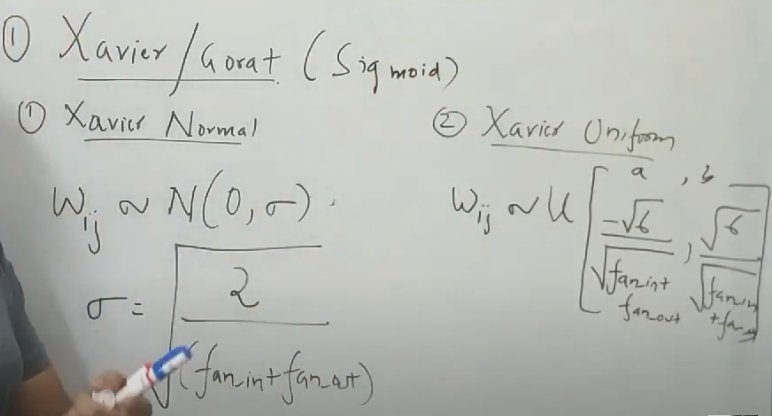 ① Xavier/Gorat (Sigmoid)
① Xavier Normal
W_ij ~ N(0, σ).
σ = √(2 / (fan_in + fan_out))
② Xavier Uniform
a , b
W_ij ~ U [-√6 / √(fan_in + fan_out), √6 / √(fan_in + fan_out)]